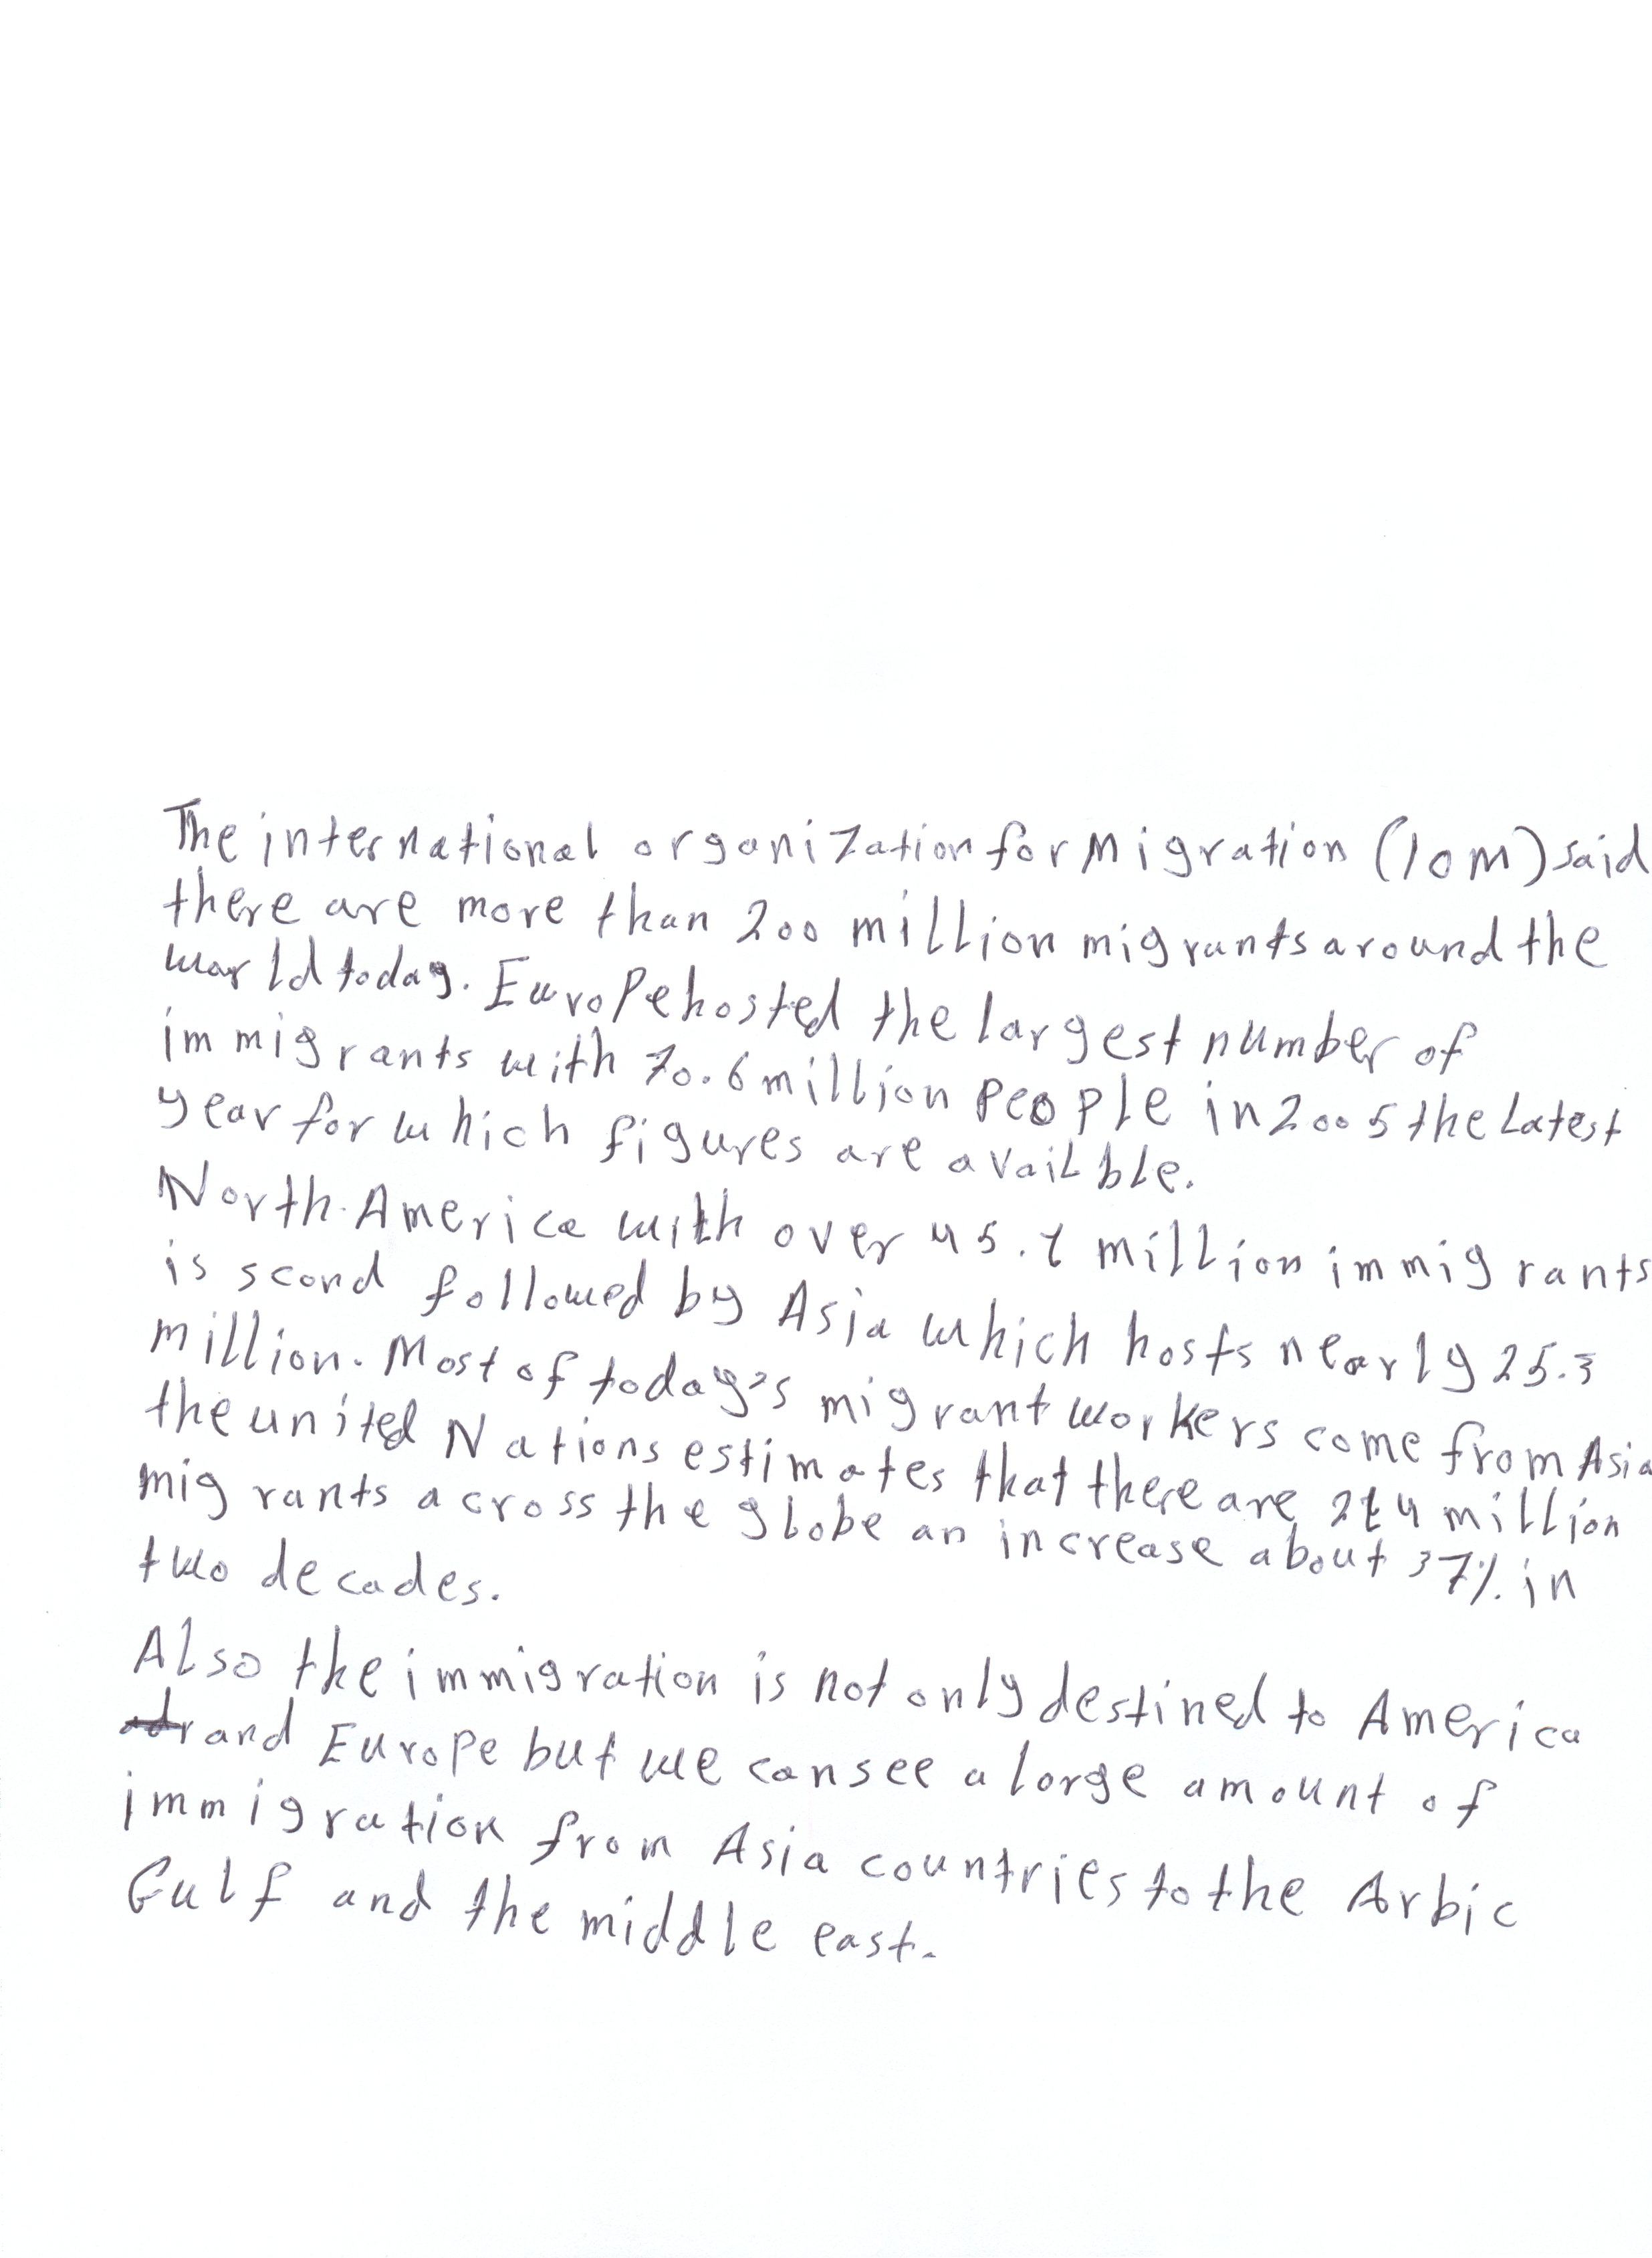 The international organization for Migration (IOM) said
there are more than 200 million migrants around the
world today. Europe hosted the largest number of
immigrants with 70.6 million people in 2005 the latest
year for which figures are availble.
North America with over 45.1 million immigrants
is scond followed by Asia which hosts nearly 25.3
million. Most of today's migrant workers come from Asia
the united Nations estimates that there are 214 million
migrants across the globe an increase about 37% in
two decades.
Also the immigration is not only destined to America
and Europe but we can see a large amount of
immigration from Asia countries to the Arbic
Gulf and the middle east.